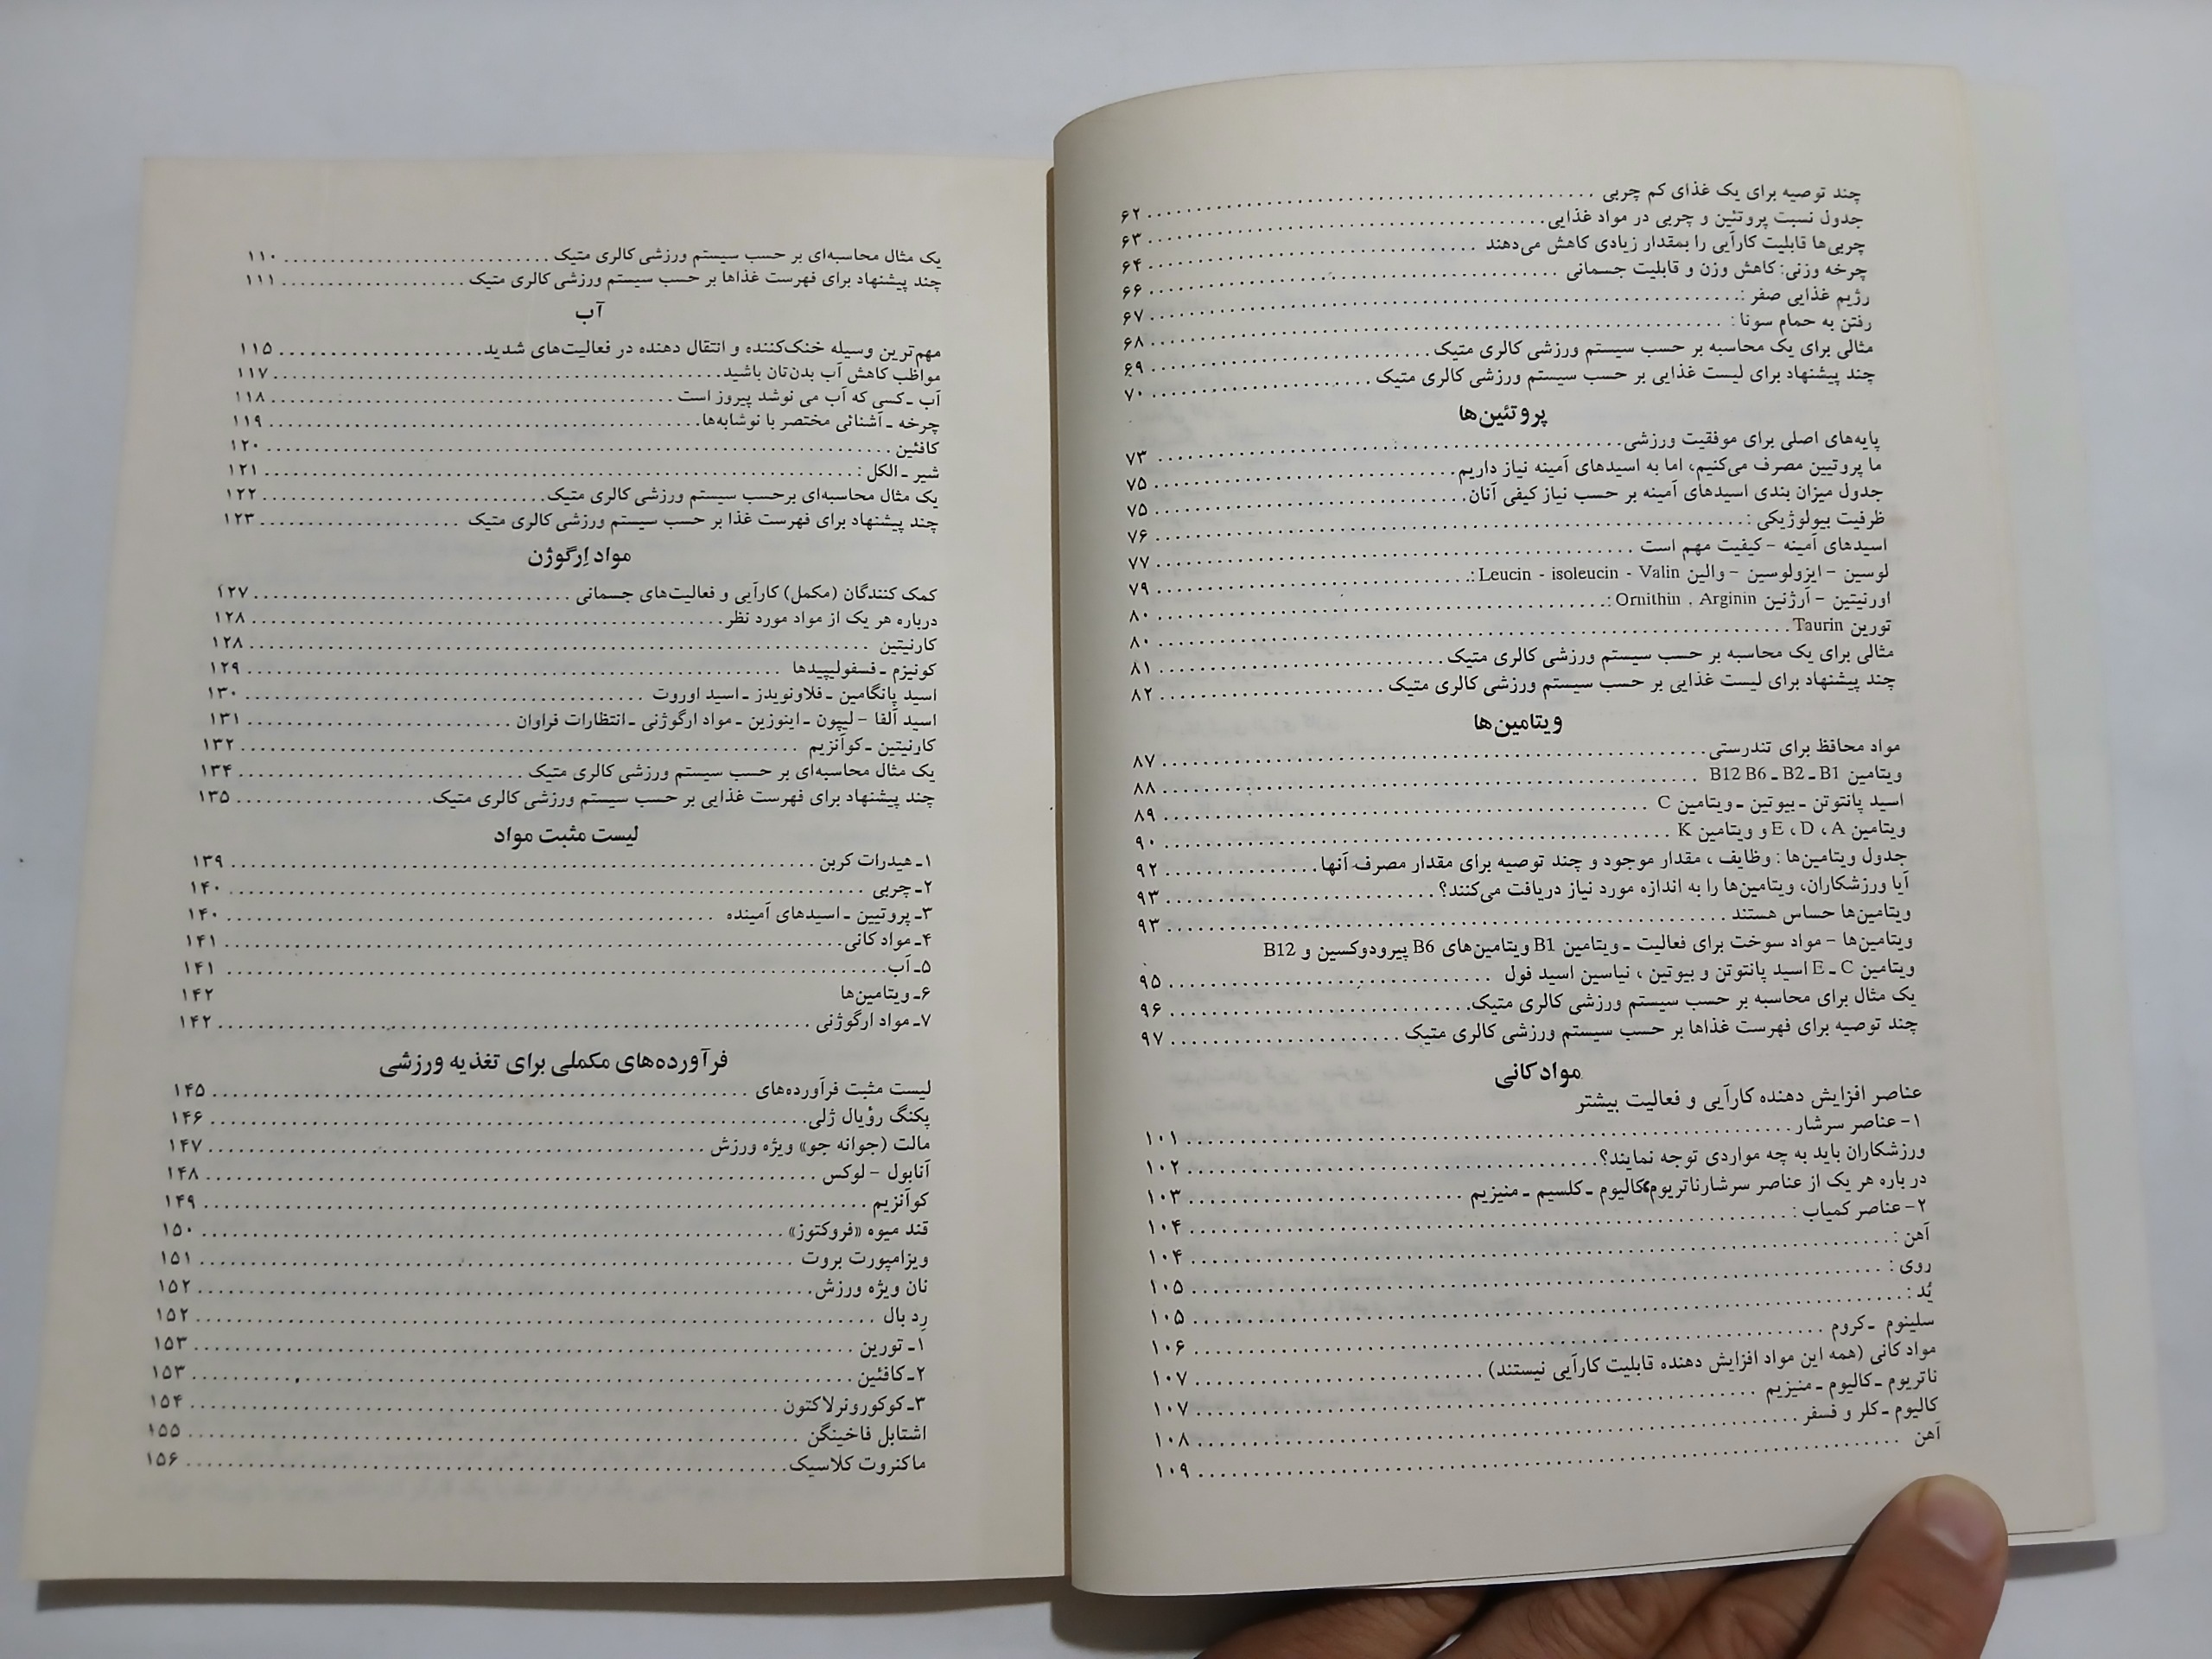 چند توصیه برای یک غذای کم چربی ........ ۶۲
جدول نسبت پروتئین و چربی در مواد غذایی ........ ۶۳
چربی‌ها قابلیت کارآیی را بمقدار زیادی کاهش می‌دهند ........ ۶۴
چرخه وزنی: کاهش وزن و قابلیت جسمانی ........ ۶۶
رژیم غذایی صفر : ........ ۶۷
رفتن به حمام سونا : ........ ۶۸
مثالی برای یک محاسبه بر حسب سیستم ورزشی کالری متیک ........ ۶۹
چند پیشنهاد برای لیست غذایی بر حسب سیستم ورزشی کالری متیک ........ ۷۰
پروتئین‌ها
پایه‌های اصلی برای موفقیت ورزشی ........ ۷۳
ما پروتیین مصرف می‌کنیم، اما به اسیدهای آمینه نیاز داریم ........ ۷۵
جدول میزان بندی اسیدهای آمینه بر حسب نیاز کیفی آنان ........ ۷۵
ظرفیت بیولوژیکی : ........ ۷۶
اسیدهای آمینه – کیفیت مهم است ........ ۷۷
لوسین – ایزولوسین – والین Leucin - isoleucin - Valin : ........ ۷۹
اورنیتین – آرژنین Ornithin . Arginin : ........ ۸۰
تورین Taurin ........ ۸۰
مثالی برای یک محاسبه بر حسب سیستم ورزشی کالری متیک ........ ۸۱
چند پیشنهاد برای لیست غذایی بر حسب سیستم ورزشی کالری متیک ........ ۸۲
ویتامین‌ها
مواد محافظ برای تندرستی ........ ۸۷
ویتامین B1 ـ B2 ـ B12 B6 ........ ۸۸
اسید پانتوتن ـ بیوتین ـ ویتامین C ........ ۸۹
ویتامین A ، D ، E و ویتامین K ........ ۹۰
جدول ویتامین‌ها : وظایف ، مقدار موجود و چند توصیه برای مقدار مصرف آنها ........ ۹۲
آیا ورزشکاران، ویتامین‌ها را به اندازه مورد نیاز دریافت می‌کنند؟ ........ ۹۳
ویتامین‌ها حساس هستند ........ ۹۳
ویتامین‌ها – مواد سوخت برای فعالیت ـ ویتامین B1 ویتامین‌های B6 پیرودوکسین و B12
ویتامین C ـ E اسید پانتوتن و بیوتین ، نیاسین اسید فول ........ ۹۵
یک مثال برای محاسبه بر حسب سیستم ورزشی کالری متیک ........ ۹۶
چند توصیه برای فهرست غذاها بر حسب سیستم ورزشی کالری متیک ........ ۹۷
مواد کانی
عناصر افزایش دهنده کارآیی و فعالیت بیشتر
۱– عناصر سرشار ........ ۱۰۱
ورزشکاران باید به چه مواردی توجه نمایند؟ ........ ۱۰۲
در باره هر یک از عناصر سرشارناتریوم، کالیوم ـ کلسیم ـ منیزیم ........ ۱۰۳
۲– عناصر کمیاب : ........ ۱۰۴
آهن : ........ ۱۰۴
روی : ........ ۱۰۵
یُد : ........ ۱۰۵
سلینوم ـ کروم ........ ۱۰۶
مواد کانی (همه این مواد افزایش دهنده قابلیت کارآیی نیستند) ........ ۱۰۷
ناتریوم ـ کالیوم ـ منیزیم ........ ۱۰۷
کالیوم ـ کلر و فسفر ........ ۱۰۸
آهن ........ ۱۰۹
یک مثال محاسبه‌ای بر حسب سیستم ورزشی کالری متیک ........ ۱۱۰
چند پیشنهاد برای فهرست غذاها بر حسب سیستم ورزشی کالری متیک ........ ۱۱۱
آب
مهم‌ترین وسیله خنک‌کننده و انتقال دهنده در فعالیت‌های شدید ........ ۱۱۵
مواظب کاهش آب بدن‌تان باشید ........ ۱۱۷
آب ـ کسی که آب می نوشد پیروز است ........ ۱۱۸
چرخه ـ آشنائی مختصر با نوشابه‌ها ........ ۱۱۹
کافئین ........ ۱۲۰
شیر ـ الکل : ........ ۱۲۱
یک مثال محاسبه‌ای برحسب سیستم ورزشی کالری متیک ........ ۱۲۲
چند پیشنهاد برای فهرست غذا بر حسب سیستم ورزشی کالری متیک ........ ۱۲۳
مواد اِرگوژن
کمک کنندگان (مکمل) کارآیی و فعالیت‌های جسمانی ........ ۱۲۷
درباره هر یک از مواد مورد نظر ........ ۱۲۸
کارنیتین ........ ۱۲۸
کونیزم ـ فسفولیپیدها ........ ۱۲۹
اسید پانگامین ـ فلاونویدز ـ اسید اوروت ........ ۱۳۰
اسید آلفا – لیپون ـ اینوزین ـ مواد ارگوژنی ـ انتظارات فراوان ........ ۱۳۱
کارنیتین ـ کوآنزیم ........ ۱۳۲
یک مثال محاسبه‌ای بر حسب سیستم ورزشی کالری متیک ........ ۱۳۴
چند پیشنهاد برای فهرست غذایی بر حسب سیستم ورزشی کالری متیک ........ ۱۳۵
لیست مثبت مواد
۱ـ هیدرات کربن ........ ۱۳۹
۲ـ چربی ........ ۱۴۰
۳ـ پروتیین ـ اسیدهای آمینده ........ ۱۴۰
۴ـ مواد کانی ........ ۱۴۱
۵ـ آب ........ ۱۴۱
۶ـ ویتامین‌ها ۱۴۲
۷ـ مواد ارگوژنی ........ ۱۴۲
فرآورده‌های مکملی برای تغذیه ورزشی
لیست مثبت فرآورده‌های ........ ۱۴۵
پکنگ رؤیال ژلی ........ ۱۴۶
مالت (جوانه جو» ویژه ورزش ........ ۱۴۷
آنابول – لوکس ........ ۱۴۸
کوآنزیم ........ ۱۴۹
قند میوه «فروکتوز» ........ ۱۵۰
ویزامپورت بروت ........ ۱۵۱
نان ویژه ورزش ........ ۱۵۲
رِد بال ........ ۱۵۲
۱ـ تورین ........ ۱۵۳
۲ـ کافئین ........ ۱۵۳
۳ـ کوکورونرلاکتون ........ ۱۵۴
اشتابل فاخینگن ........ ۱۵۵
ماکنروت کلاسیک ........ ۱۵۶